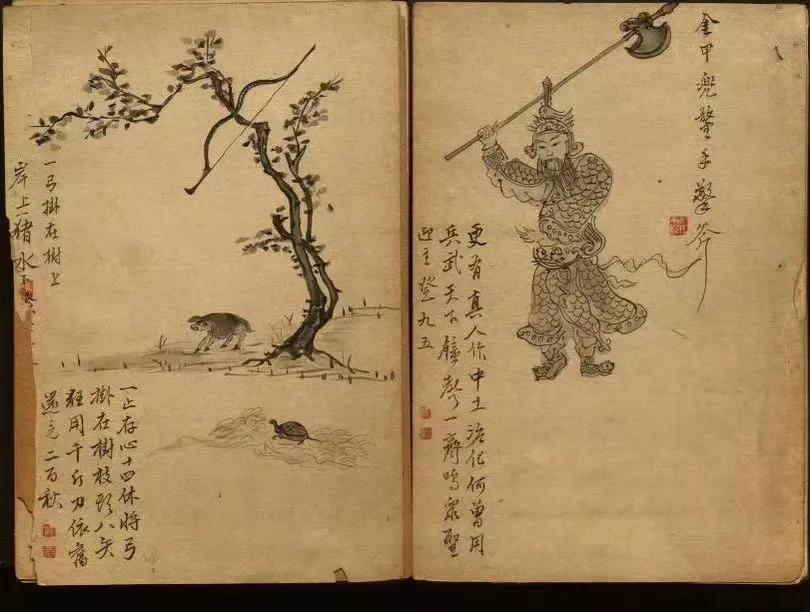 金甲兜鍪手擎斧
更有真人作中土治化何曾用
兵武天下鐘聲一齊鳴眾聖
迎主登九五
一弓掛在樹上
岸上一猪水下
一止存心十四休將弓
掛在樹枝頭八矢
用千斤力依舊
還元二百秋